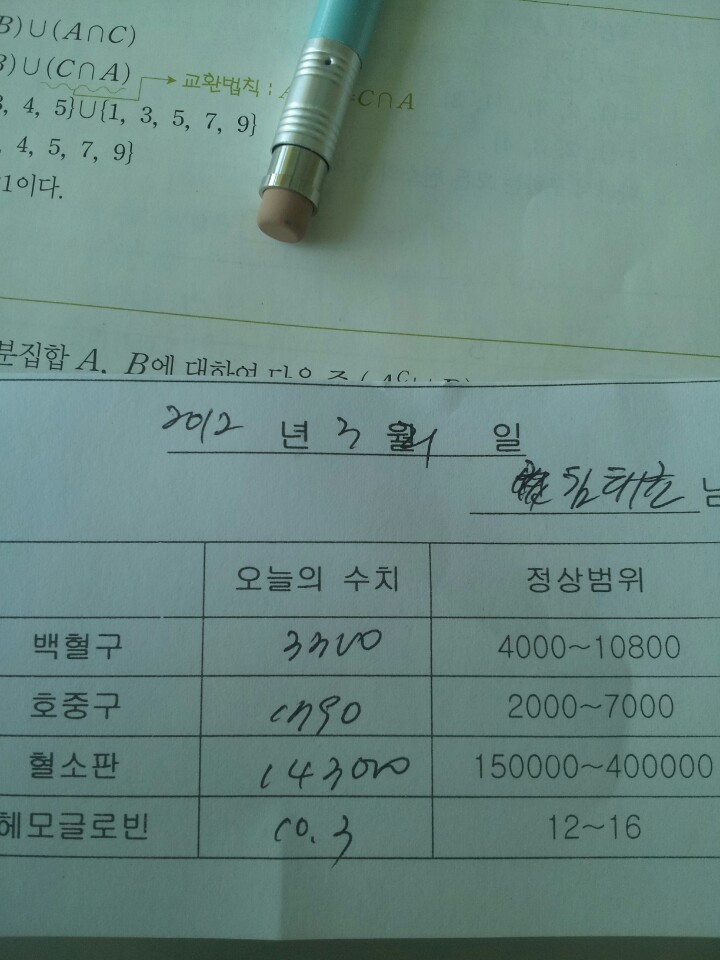 B)∪(A∩C)
B)∪(C∩A)
교환법칙 : A =C∩A
3, 4, 5}∪{1, 3, 5, 7, 9}
, 4, 5, 7, 9}
1이다.
분집합 A, B에 대하여 다음 중
2012 년 3 월 일
님
오늘의 수치 정상범위
백혈구 4000~10800
호중구 1790 2000~7000
혈소판 143000 150000~400000
헤모글로빈 10.3 12~16